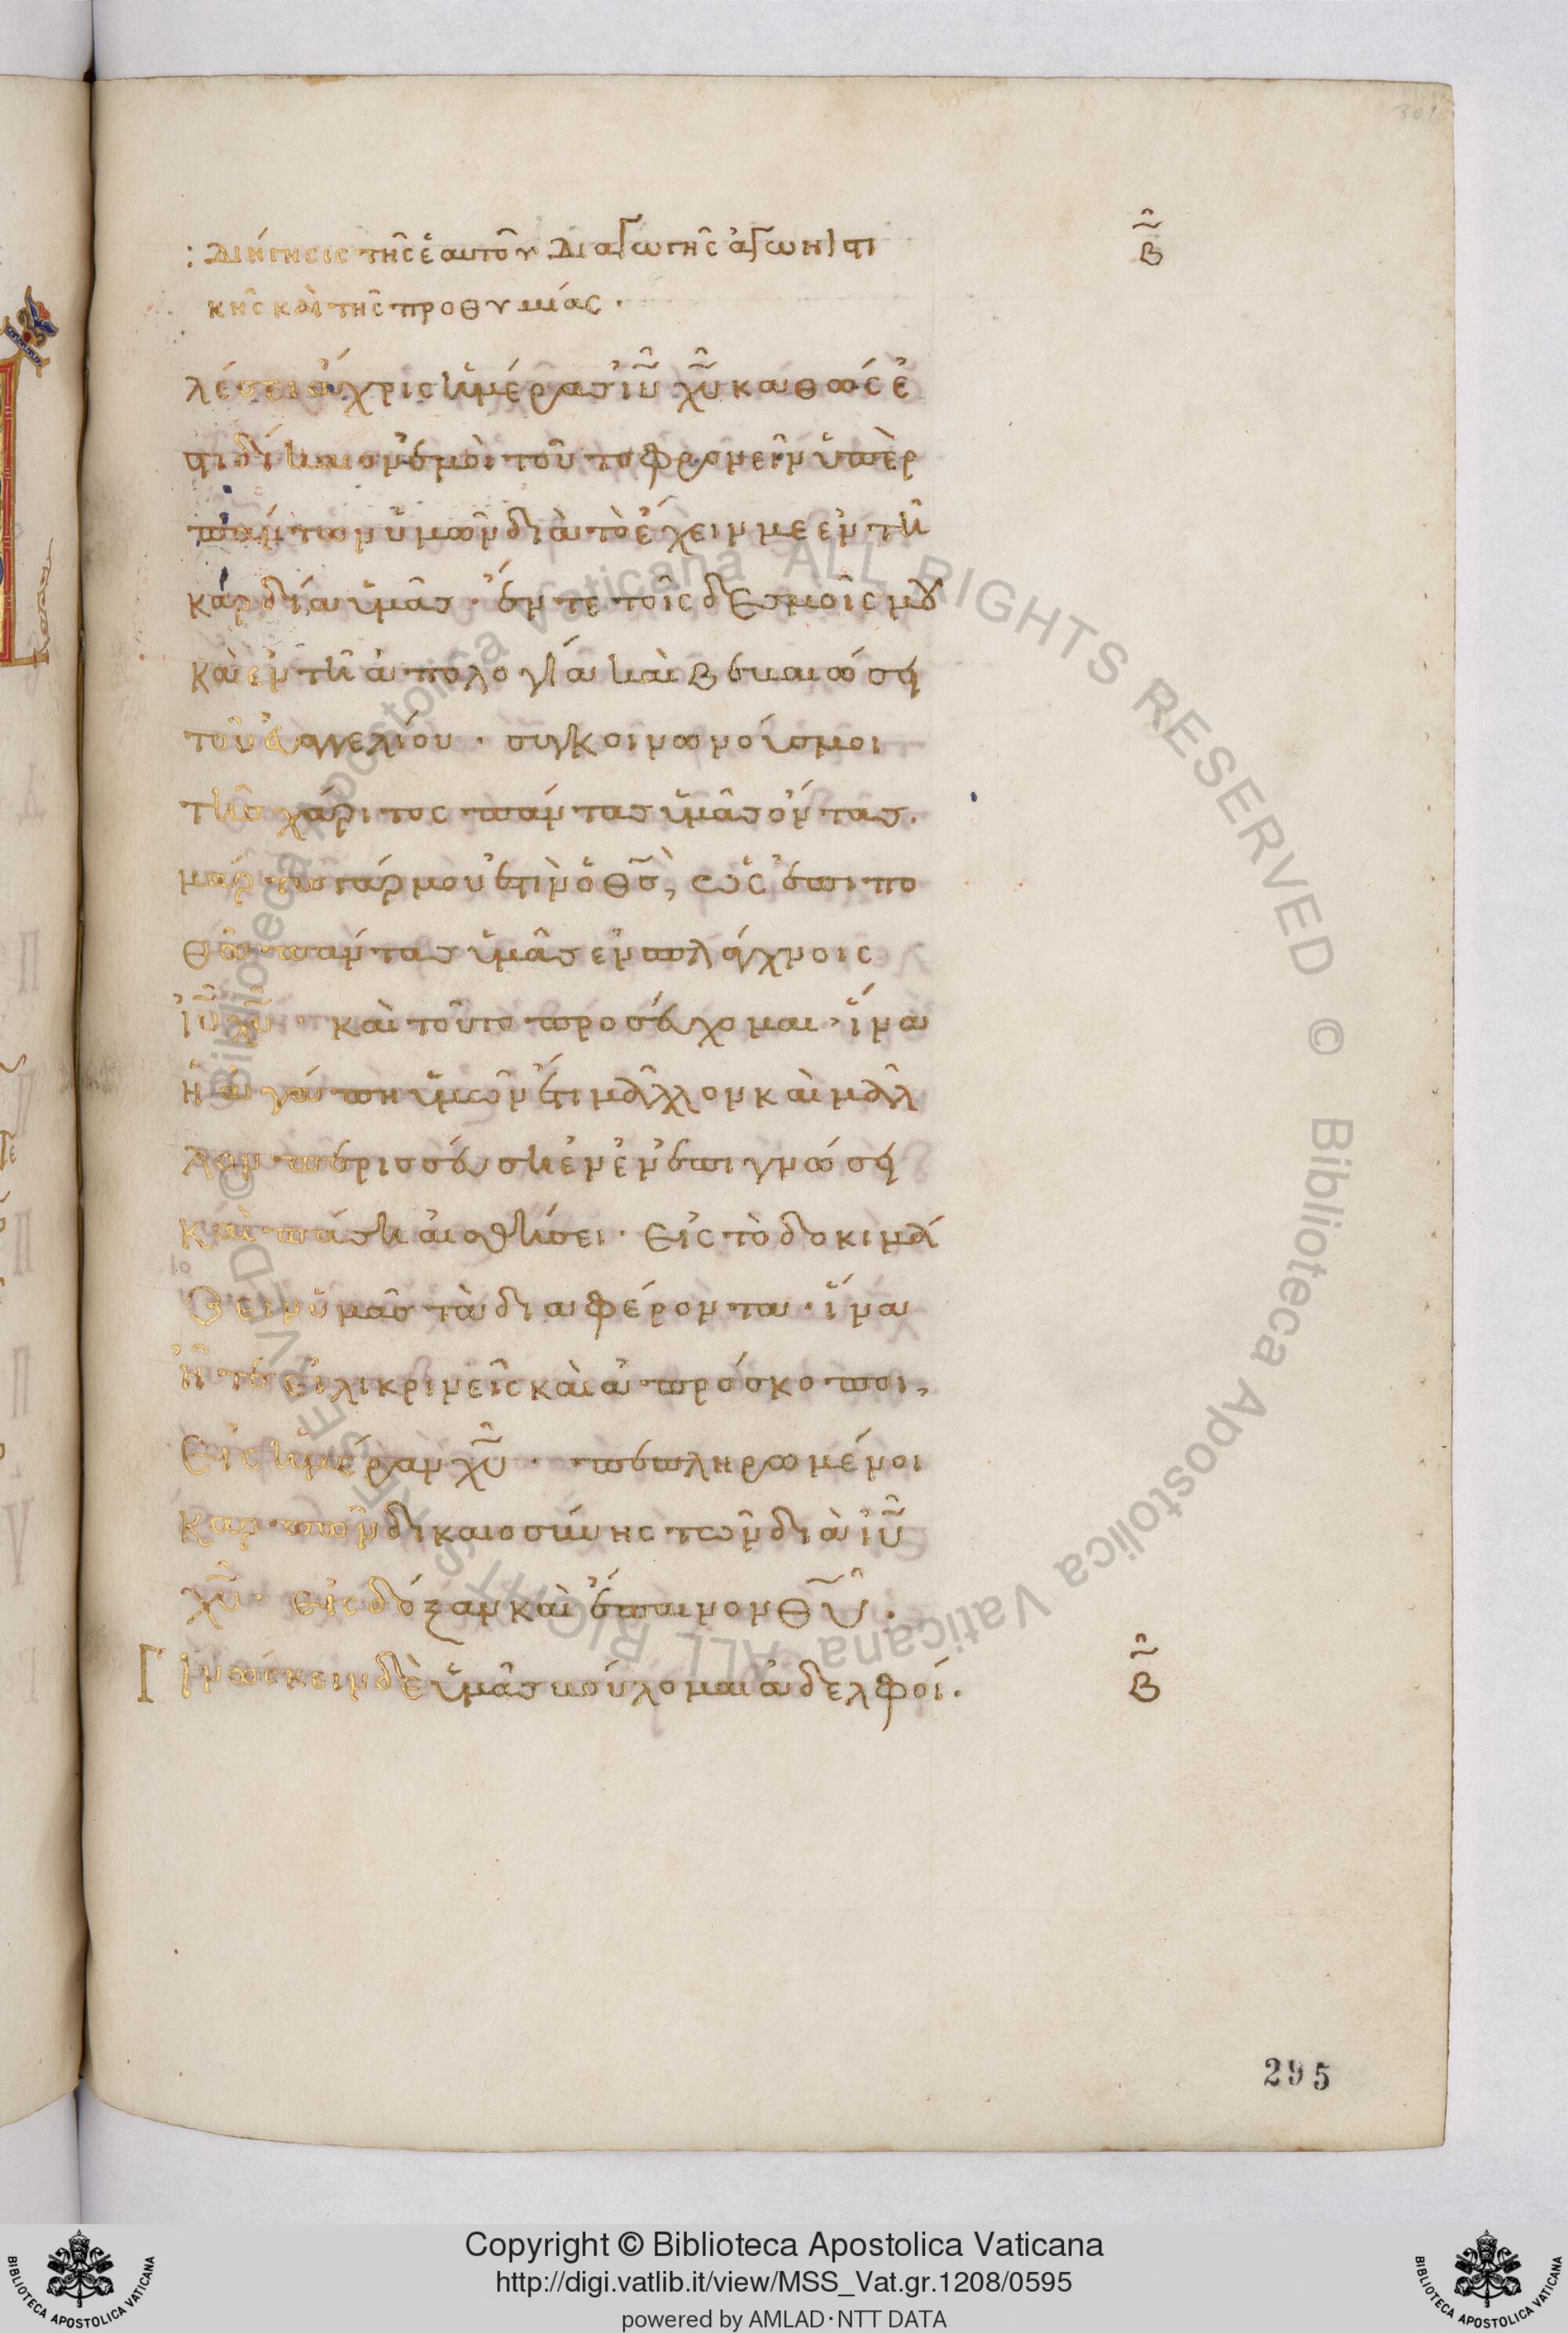 : Διήγησις τῆς ἑαυτοῦ διαγωγῆς ἀγωνιστι β
κῆς καὶ τῆς προθυμίας ·
λέσει ἄχρις ἡμέρας ἰῦ χῦ καθώς ἐ
στι δίκαιον ἐμοὶ τοῦτο φρονεῖν ὑπὲρ
πάντων ὑμῶν διὰ τὸ ἔχειν με ἐν τῆ
καρδία ὑμᾶς · ἔν τε τοῖς δεσμοῖς μου
καὶ ἐν τῆ ἀπολογία καὶ βεβαιώσει
τοῦ εὐαγγελίου · συγκοινωνούς μοι
τῆς χάριτος πάντας ὑμᾶς ὄντας.
μάρτυς γάρ μου ἐστὶν ὁ θς, ὡς ἐπιπο
θῶ πάντας ὑμᾶς ἐν σπλάγχνοις
ἰῦ χῦ · καὶ τοῦτο προσεύχομαι, ἵνα
ἡ ἀγάπη ὑμῶν ἔτι μᾶλλον καὶ μᾶλ
λον περισσεύση ἐν ἐπιγνώσει
καὶ πάση αἰσθήσει · εἰς τὸ δοκιμά
ζειν ὑμᾶς τὰ διαφέροντα · ἵνα
ἦτε εἰλικρινεῖς καὶ ἀπρόσκοποι,
εἰς ἡμέραν χῦ · πεπληρωμένοι
καρπῶν δικαιοσύνης τῶν διὰ ἰῦ
χῦ · εἰς δόξαν καὶ ἔπαινον θῦ .
Γινώσκειν δὲ ὑμᾶς βούλομαι ἀδελφοί . β
295
Copyright © Biblioteca Apostolica Vaticana
http://digi.vatlib.it/view/MSS_Vat.gr.1208/0595
powered by AMLAD·NTT DATA
© Biblioteca Apostolica Vaticana ALL RIGHTS RESERVED © Biblioteca Apostolica Vaticana ALL RIGHTS RESERVED
BIBLIOTECA APOSTOLICA VATICANA
BIBLIOTECA APOSTOLICA VATICANA